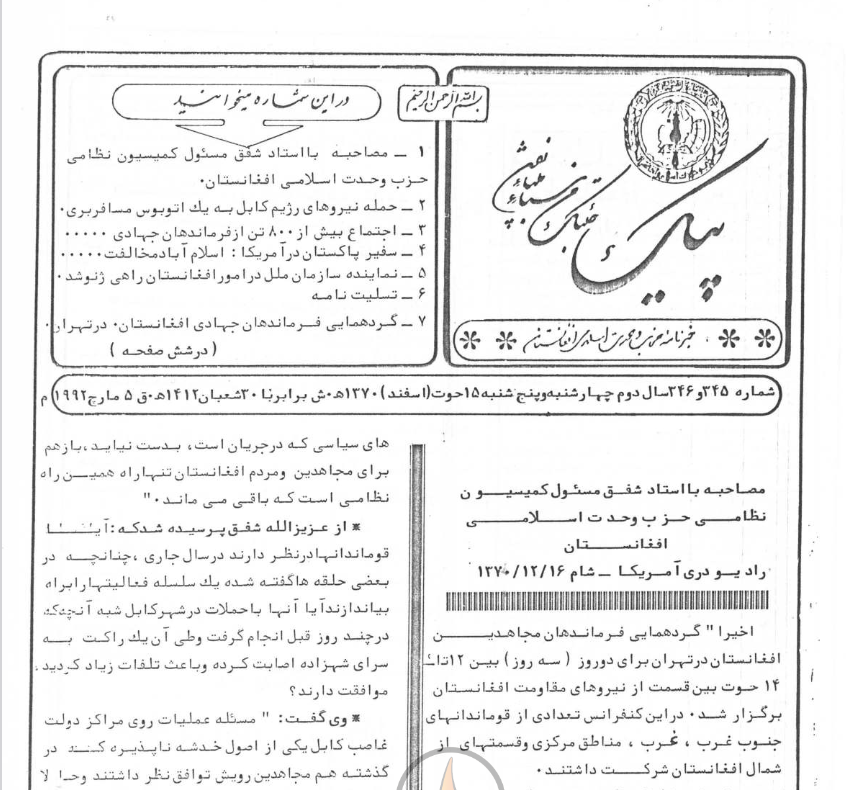 بسم الله الرحمن الرحیم
پیک
خبرنامهٔ حزب وحدت اسلامی افغانستان
در این شماره میخوانید
۱ ــ مصاحبه بااستاد شفق مسئول کمیسیون نظامی
حزب وحدت اسلامی افغانستان۰
۲ ــ حمله نیروهای رژیم کابل به یك اتوبوس مسافربری۰
۳ ــ اجتماع بیش از ۸۰۰ تن ازفرماندهان جهادی ۰۰۰۰۰
۴ ــ سفیر پاکستان درآمریکا : اسلام آبادمخالفت۰۰۰۰۰
۵ ــ نماینده سازمان ملل درامورافغانستان راهی ژنوشد۰
۶ ــ تسلیت نامه
۷ ــ گردهمایی فرماندهان جهادی افغانستان۰ درتهران۰
( درشش صفحه )
شماره ۳۴۵و۳۴۶سال دوم چهارشنبه‌وپنج شنبه۱۵حوت(اسفند)۱۳۷۰ه‍۰ش برابربا ۳۰شعبان۱۴۱۲ه‍۰ق ۵ مارچ۱۹۹۲ م
مصاحبه بااستاد شفق مسئول کمیسیون
نظامی حزب وحدت اسلامی
افغانستان
رادیو دری آمریکا ــ شام ۱۳۷۰/۱۲/۱۶
اخیرا " گردهمایی فرماندهان مجاهدین
افغانستان درتهران برای دوروز ( سه روز ) بین ۱۲تا
۱۴ حوت بین قسمت از نیروهای مقاومت افغانستان
برگزار شد۰ دراین کنفرانس تعدادی از قوماندانهای
جنوب غرب ، غرب ، مناطق مرکزی وقسمتهای از
شمال افغانستان شرکت داشتند۰
های سیاسی که درجریان است، بدست نیاید ،بازهم
برای مجاهدین ومردم افغانستان تنهاراه همین راه
نظامی است که باقی می ماند۰"
* از عزیزالله شفق پرسیده شدکه :آیا شما
قوماندانهادرنظر دارند درسال جاری ،چنانچه در
بعضی حلقه هاگفته شده یك سلسله فعالیتهارابراه
بیاندازندآیا آنها باحملات درشهرکابل شبه آنچه‌که
درچند روز قبل انجام گرفت وطی آن یك راکت به
سرای شهزاده اصابت کرده وباعث تلفات زیاد گردید،
موافقت دارند؟
* وی گفت: " مسئله عملیات روی مراکز دولت
غاصب کابل یکی از اصول خدشه ناپذیره که در
گذشته هم مجاهدین رویش توافق نظر داشتند وحالا